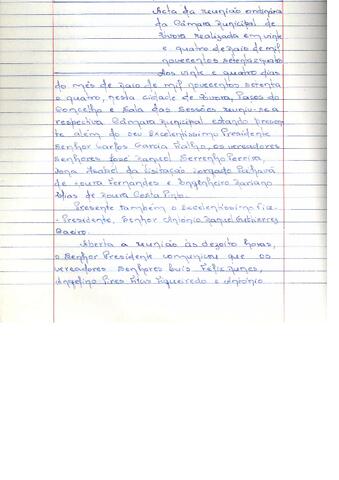 Acta da reunião ordinária
da Câmara Municipal de
Évora realizada em vinte
e quatro de Maio de mil
novecentos setenta e quatro
Aos vinte e quatro dias
do mês de Maio de mil novecentos setenta
e quatro, nesta cidade de Évora, Paços do
Concelho e Sala das Sessões reuniu-se a
respectiva Câmara Municipal estando presen-
te além do seu Excelentíssimo Presidente
Senhor Carlos Garcia Fialho, os vereadores
Senhores José Manuel Serrenho Pereira,
Dona Isabel da Visitação Morgado Pachava
de Moura Fernandes e Engenheiro Mariano
Dias de Moura Costa Pinto.
Presente também o Excelentíssimo Vice
- Presidente, Senhor António Manuel Gutierres
Baeiro.
Aberta a reunião às dezoito horas,
o Senhor Presidente comunicou que os
vereadores Senhores Luís Felix Nunes,
Angelino Pires Figueiredo e António